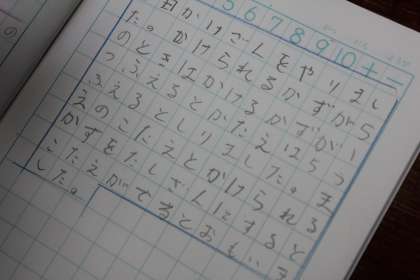 5 6 7 8 9 10 + −
日かけざんをやりまし
た。かけられるかずが5
のときはかけるかずが1
つふえるとこたえは5つ
ふえるとしりました。ま
えのこたえとかけられる
かずをたしざんにすると
こたえがでるとおもいま
した。
の